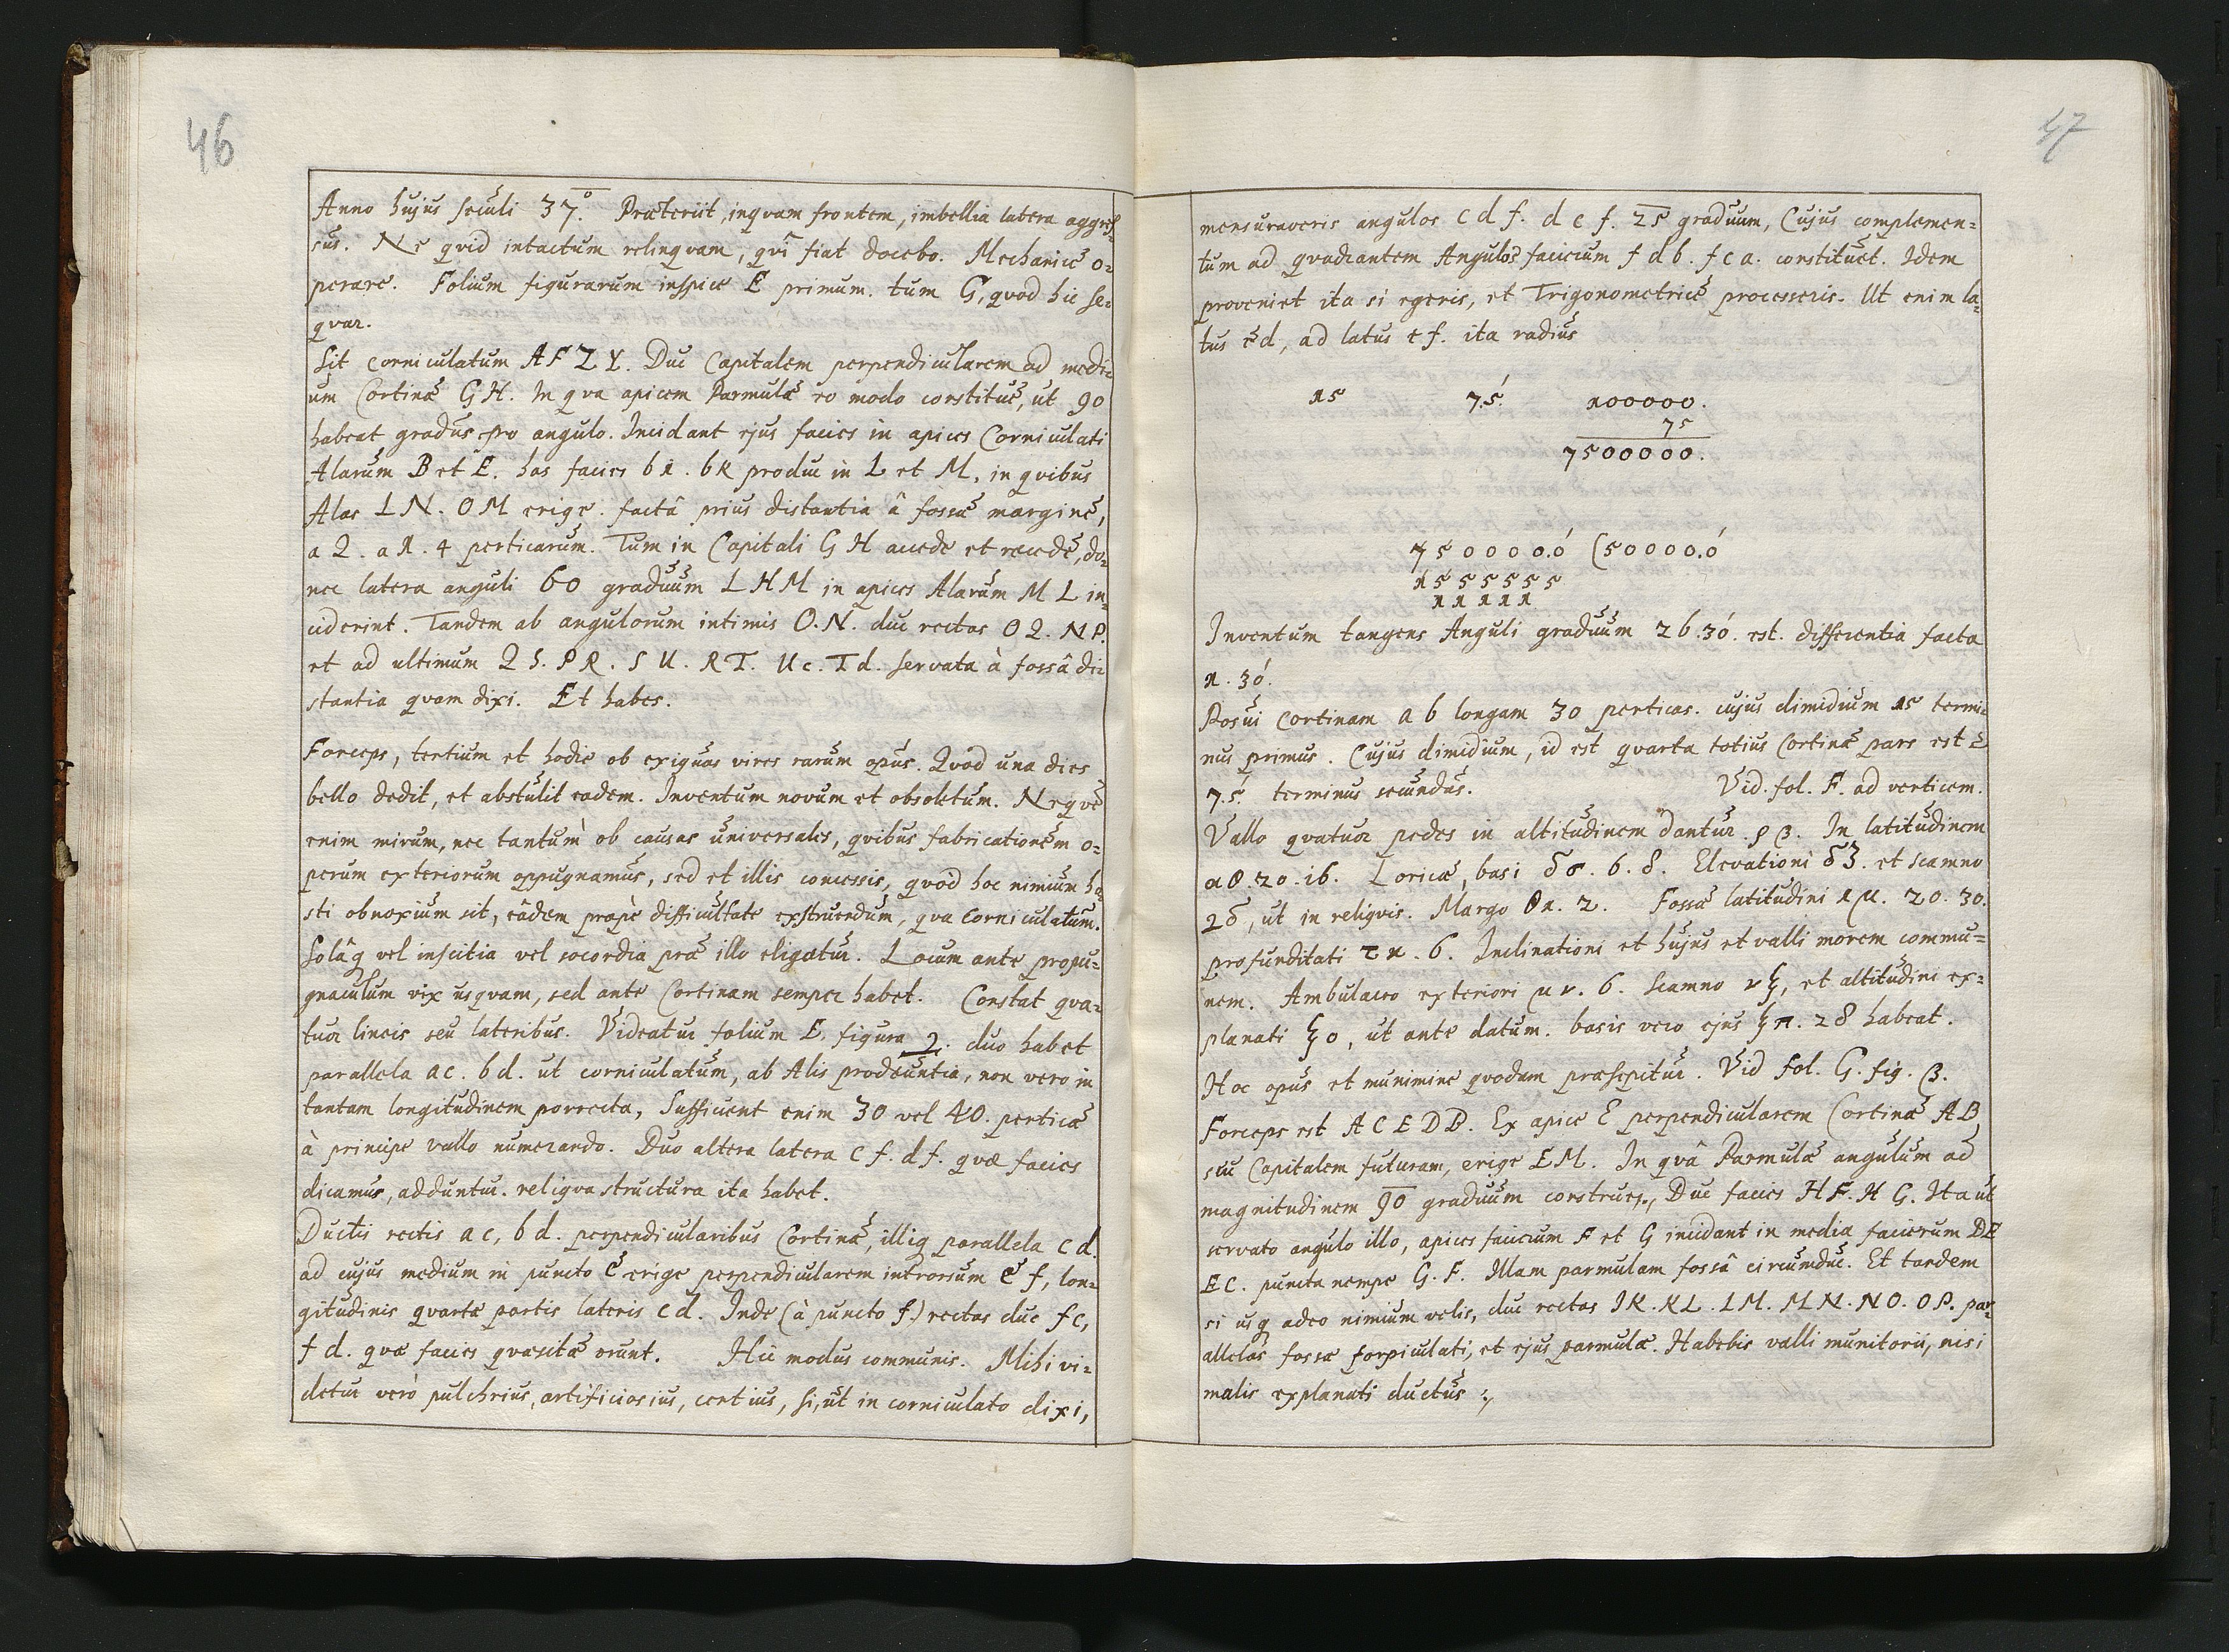 46
Anno hujus seculi 37.° Præteriit, inqvam frontem, imbellia latera aggres=
sus. Ne qvid intactum relinqvam, qvî fiat docebo. Mechanicè o=
perare. Folium figurarum inspice E primum. tum G, qvod hic se=
qvar.
Sit corniculatum AFZY. Duc Capitalem perpendicularem ad medi=
um Cortinæ GH. In qva apicem Parmulæ eo modo constitue, ut 90
habeat gradus pro angulo. Incidant ejus facies in apices Corniculati
Alarum B et E. has facies bi. bk produc in L et M, in qvibus
Alas LN. OM erige. factâ prius distantia â fossæ margine,
a 2. a 1. 4 perticarum. Tum in Capitali GH accede et recede, do=
nec latera anguli 60 graduum LHM in apices Alarum ML in=
ciderint. Tandem ab angulorum intimis O.N. duc rectas OQ. NP.
et ad ultimum QS. PR. SU. RT. Uc. Td. servata à fossâ di=
stantia qvam dixi. Et habes.
Forceps, tertium et hodie ob exiguas vires rarum opus. Qvod una dies
bello dedit, et abstulit eadem. Inventum novum et obsoletum. Neqve
enim mirum, nec tantum ob causas universales, qvibus fabricationem o=
perum exteriorum oppugnamus, sed et illis concessis, qvòd hoc nimium ho=
sti obnoxium sit, eâdem propè difficultate exstruendum, qva corniculatum.
Solâq vel inscitia vel socordia præ illo eligatur. Locum ante propu=
gnaculum vix usqvam, sed ante Cortinam semper habet. Constat qva=
tuor lineis seu lateribus. Videatur folium E. figura 2. duo habet
parallela ac. bd. ut corniculatum, ab Alis prodeuntia, non vero in
tantam longitudinem porrecta, Sufficient enim 30 vel 40. perticæ
à principe vallo numerando. Duo altera latera cf. df. qvæ facies
dicamus, adduntur. reliqva structura ita habet.
Ductis rectis ac, bd. perpendicularibus Cortinæ, illiq parallela cd.
ad cujus medium in puncto e erige perpendicularem introrsum ef, lon=
gitudinis qvartæ partis lateris cd. Inde (à puncto f.) rectas duc fc,
fd. qvæ facies qvæsitæ erunt. Hic modus communis. Mihi vi=
detur verò pulchrius, artificiosius, certius, si, ut in corniculato dixi,
47
mensuraveris angulos cdf. dcf. 25 graduum, Cujus complemen=
tum ad qvadrantem Angulos facierum fdb. fca. constituet. Idem
proveniet ita si egeris, et Trigonometricè processeris. Ut enim la=
tus ed, ad latus ef. ita radius
15 7.5. 100000.
75
7500000.
750000.0 (50000.0
1555555
11111
Inventum tangens Anguli graduum 26.30. est. differentia facta
1.30.
Posui Cortinam ab longam 30 perticas. cujus dimidium 15 termi=
nus primus. Cujus dimidium, id est qvarta totius Cortinæ pars est
7.5. terminus secundus. Vid. fol. F. ad verticem.
Vallo qvatuor pedes in altitudinem dantur. ρβ. In latitudinem
αθ. 20. 16. Loricæ, basi δσ. 6. 8. Elevationi δ3. et scamno
2δ, ut in reliqvis. Margo θλ. 2. Fossæ latitudini λμ. 20. 30.
profunditati τκ. 6. Inclinationi et hujus et valli morem commu=
nem. Ambulacro exteriori μν. 6. Scamno νξ, et altitudini ex=
planati ξο, ut ante datum. basis vero ejus ξπ. 28 habeat.
Hoc opus et munimine qvodam præsepitur. Vid fol. G. fig. β.
Forceps est ACEDB. Ex apice E perpendicularem Cortinæ AB,
seu Capitalem futuram, erige EM. In qvâ Parmulæ angulum ad
magnitudinem 90 graduum construes., Duc facies HF. HG. Ita ut
servato angulo illo, apices facierum F et G incidant in media facierum DE
EC. puncta nempe G. F. Illam parmulam fossâ circumduc. Et tandem
si usq adeo nimium velis, duc rectas IK. KL. LM. MN. NO. OP. par=
allelas fossæ forpiculati, et ejus parmulæ. Habebis valli munitorii, nisi
malis explanati ductus ;